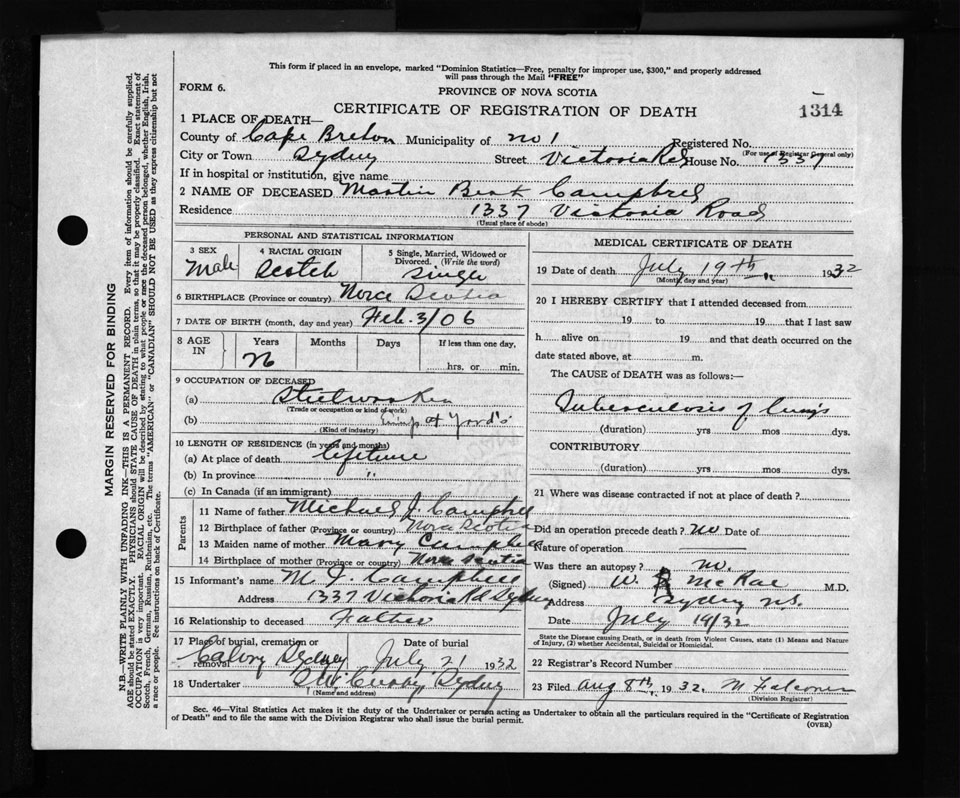 This form if placed in an envelope, marked "Dominion Statistics—Free, penalty for improper use, $300," and properly addressed
will pass through the Mail "FREE"
FORM 6.
PROVINCE OF NOVA SCOTIA
CERTIFICATE OF REGISTRATION OF DEATH
1314
1 PLACE OF DEATH—
County of Cape Breton Municipality of No 1 Registered No.
(For use of Registrar General only)
City or Town Sydney Street Victoria Rd House No. 1337
If in hospital or institution, give name
2 NAME OF DECEASED Martin Campbell
Residence 1337 Victoria Road
(Usual place of abode)
PERSONAL AND STATISTICAL INFORMATION
3 SEX Male
4 RACIAL ORIGIN Scotch
5 Single, Married, Widowed or Divorced. (Write the word) Single
6 BIRTHPLACE (Province or country) Nova Scotia
7 DATE OF BIRTH (month, day and year) Feb. 3/06
8 AGE IN Years Months Days If less than one day,
26 hrs. or min.
9 OCCUPATION OF DECEASED
(a) Steelworker
(Trade or occupation or kind of work)
(b)
(Kind of industry)
10 LENGTH OF RESIDENCE (in years and months)
(a) At place of death lifetime
(b) In province "
(c) In Canada (if an immigrant)
Parents
11 Name of father Michael J. Campbell
12 Birthplace of father (Province or country) Nova Scotia
13 Maiden name of mother Mary Campbell
14 Birthplace of mother (Province or country) Nova Scotia
15 Informant's name M. J. Campbell
Address 1337 Victoria Rd Sydney
16 Relationship to deceased Father
17 Place of burial, cremation or removal Calvry Sydney
Date of burial July 21 1932
18 Undertaker Sydney
(Name and address)
MEDICAL CERTIFICATE OF DEATH
19 Date of death July 19th, 1932
(Month, day and year)
20 I HEREBY CERTIFY that I attended deceased from
19 to 19 that I last saw
h alive on 19 and that death occurred on the
date stated above, at m.
The CAUSE of DEATH was as follows:—
Tuberculosis of lungs
(duration) yrs mos dys.
CONTRIBUTORY
(duration) yrs mos dys.
21 Where was disease contracted if not at place of death?
Did an operation precede death? no Date of
Nature of operation
Was there an autopsy? no.
(Signed) W. McRae M.D.
Address Sydney N.S.
Date July 19/32
State the Disease causing Death, or in death from Violent Causes, state (1) Means and Nature
of Injury, (2) whether Accidental, Suicidal or Homicidal.
22 Registrar's Record Number
23 Filed Aug 8th, 1932. M Falconer
(Division Registrar)
Sec. 46—Vital Statistics Act makes it the duty of the Undertaker or person acting as Undertaker to obtain all the particulars required in the "Certificate of Registration
of Death" and to file the same with the Division Registrar who shall issue the burial permit.
(OVER)
MARGIN RESERVED FOR BINDING
N.B.—WRITE PLAINLY WITH UNFADING INK—THIS IS A PERMANENT RECORD. Every item of information should be carefully supplied.
AGE should be stated EXACTLY. PHYSICIANS should STATE CAUSE OF DEATH in plain terms, so that it may be properly classified. Exact statement of
OCCUPATION is very important. RACIAL ORIGIN will be described by stating to what people or race the deceased person belonged, whether English, Irish,
Scotch, French, German, Russian, Ruthenian, etc. The terms "AMERICAN" or "CANADIAN" SHOULD NOT BE USED as they express citizenship but not
a race or people. See instructions on back of Certificate.